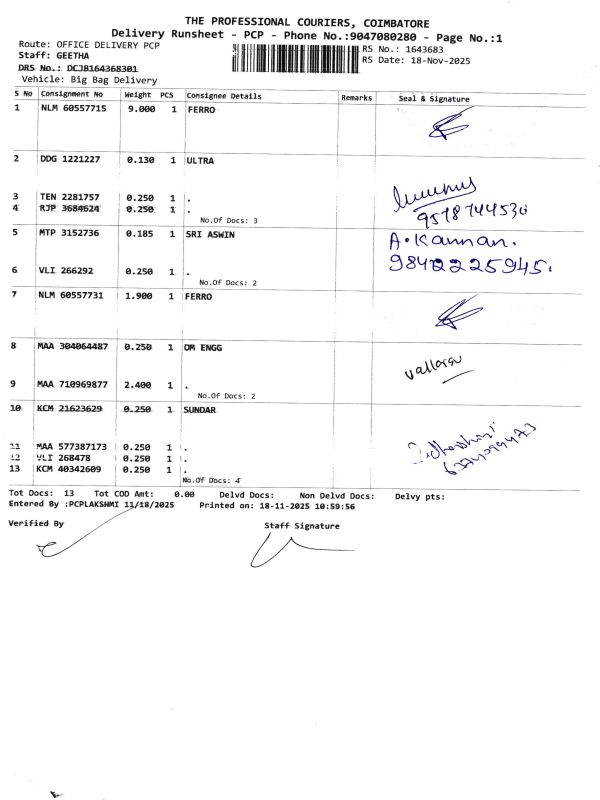 THE PROFESSIONAL COURIERS, COIMBATORE
Delivery Runsheet - PCP - Phone No.:9047080280 - Page No.:1
Route: OFFICE DELIVERY PCP
RS No.: 1643683
Staff: GEETHA
RS Date: 18-Nov-2025
DRS No.: DCJB164368301
Vehicle: Big Bag Delivery
S No Consignment No Weight PCS Consignee Details Remarks Seal & Signature
1 NLM 60557715 9.000 1 FERRO
2 DDG 1221227 0.130 1 ULTRA
3 TEN 2281757 0.250 1 .
4 RJP 3684624 0.250 1 .
No.Of Docs: 3
9578744530
5 MTP 3152736 0.185 1 SRI ASWIN
A. Kannan.
9842225945.
6 VLI 266292 0.250 1 .
No.Of Docs: 2
7 NLM 60557731 1.900 1 FERRO
8 MAA 304064487 0.250 1 OM ENGG
9 MAA 710969877 2.400 1 .
No.Of Docs: 2
10 KCM 21623629 0.250 1 SUNDAR
11 MAA 577387173 0.250 1 .
12 VLI 268478 0.250 1 .
13 KCM 40342609 0.250 1 .
No.Of Docs: 4
Tot Docs: 13 Tot COD Amt: 0.00 Delvd Docs: Non Delvd Docs: Delvy pts:
Entered By :PCPLAKSHMI 11/18/2025 Printed on: 18-11-2025 10:59:56
Verified By
Staff Signature